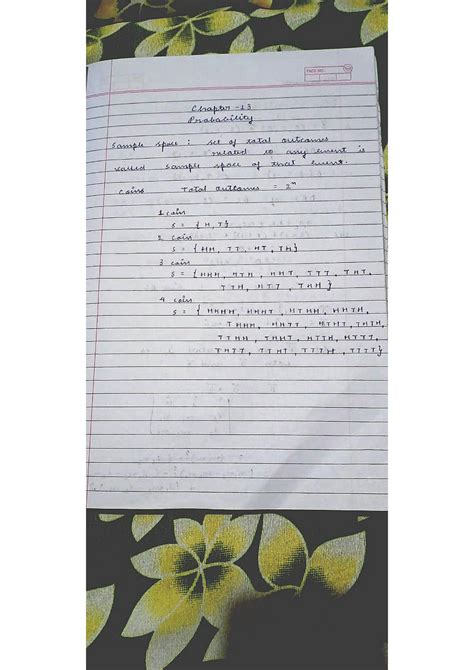 PAGE NO.
Chapter - 13
Probability
Sample space : set of total outcomes
related to any event is
called sample space of that event.
Coins Total outcomes = 2ⁿ
1 coin
S = { H, T }
2 coin
S = { HH, TT, HT, TH }
3 coin
S = { HHH, HTH, HHT, TTT, THT,
TTH, HTT, THH }
4 coin
S = { HHHH, HHHT, HTHH, HHTH,
THHH, HHTT, HTHT, THTH,
TTHH, THHT, HTTH, HTTT,
THTT, TTHT, TTTH, TTTT }